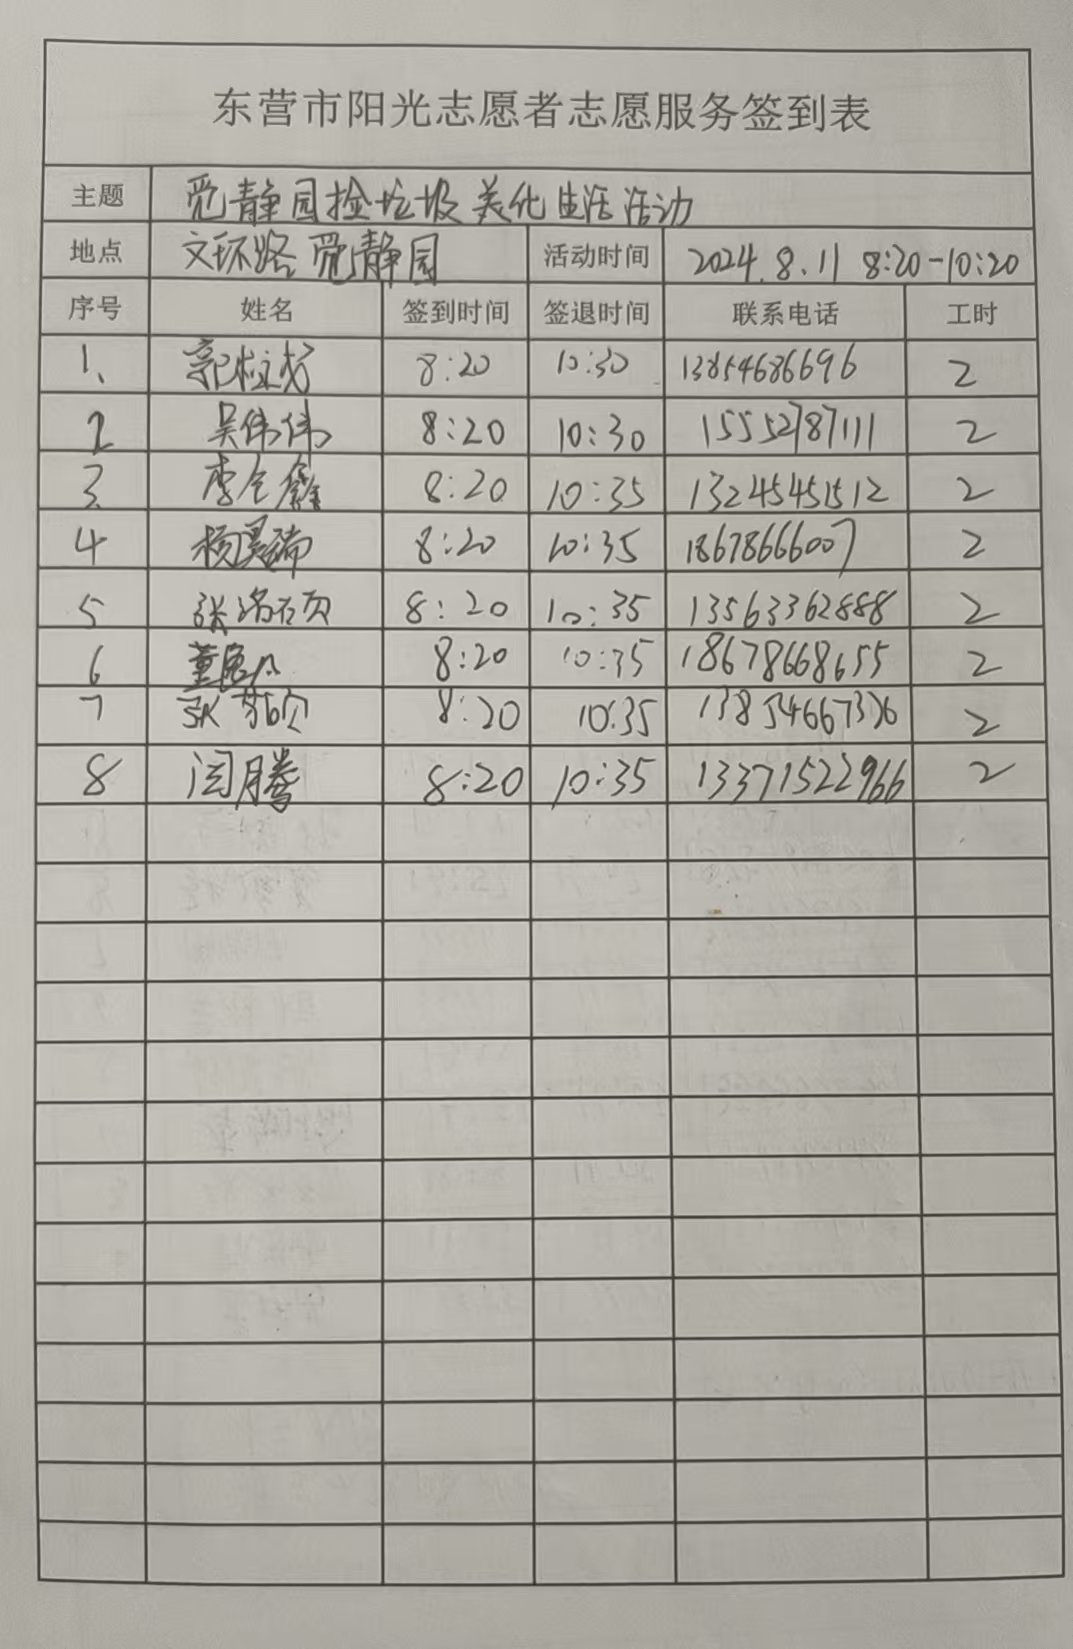 东营市阳光志愿者志愿服务签到表
主题 觅静园捡垃圾美化生活活动
地点 文环路觅静园 活动时间 2024.8.11 8:20-10:20
序号 姓名 签到时间 签退时间 联系电话 工时
1、 8:20 10:30 13854686696 2
2 吴伟伟 8:20 10:30 15552787111 2
3、 李仝鑫 8:20 10:35 13245451512 2
4 杨昊瑞 8:20 10:35 18678666007 2
5 张 8:20 10:35 13563362888 2
6 董 8:20 10:35 18678668655 2
7 张 8:20 10:35 2
8 闫腾 8:20 10:35 13371522966 2